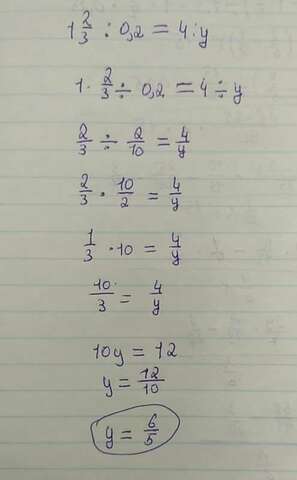 1 2/3 : 0,2 = 4 : y
1 · 2/3 ÷ 0,2 = 4 ÷ y
2/3 ÷ 2/10 = 4/y
2/3 · 10/2 = 4/y
1/3 · 10 = 4/y
10/3 = 4/y
10y = 12
y = 12/10
y = 6/5